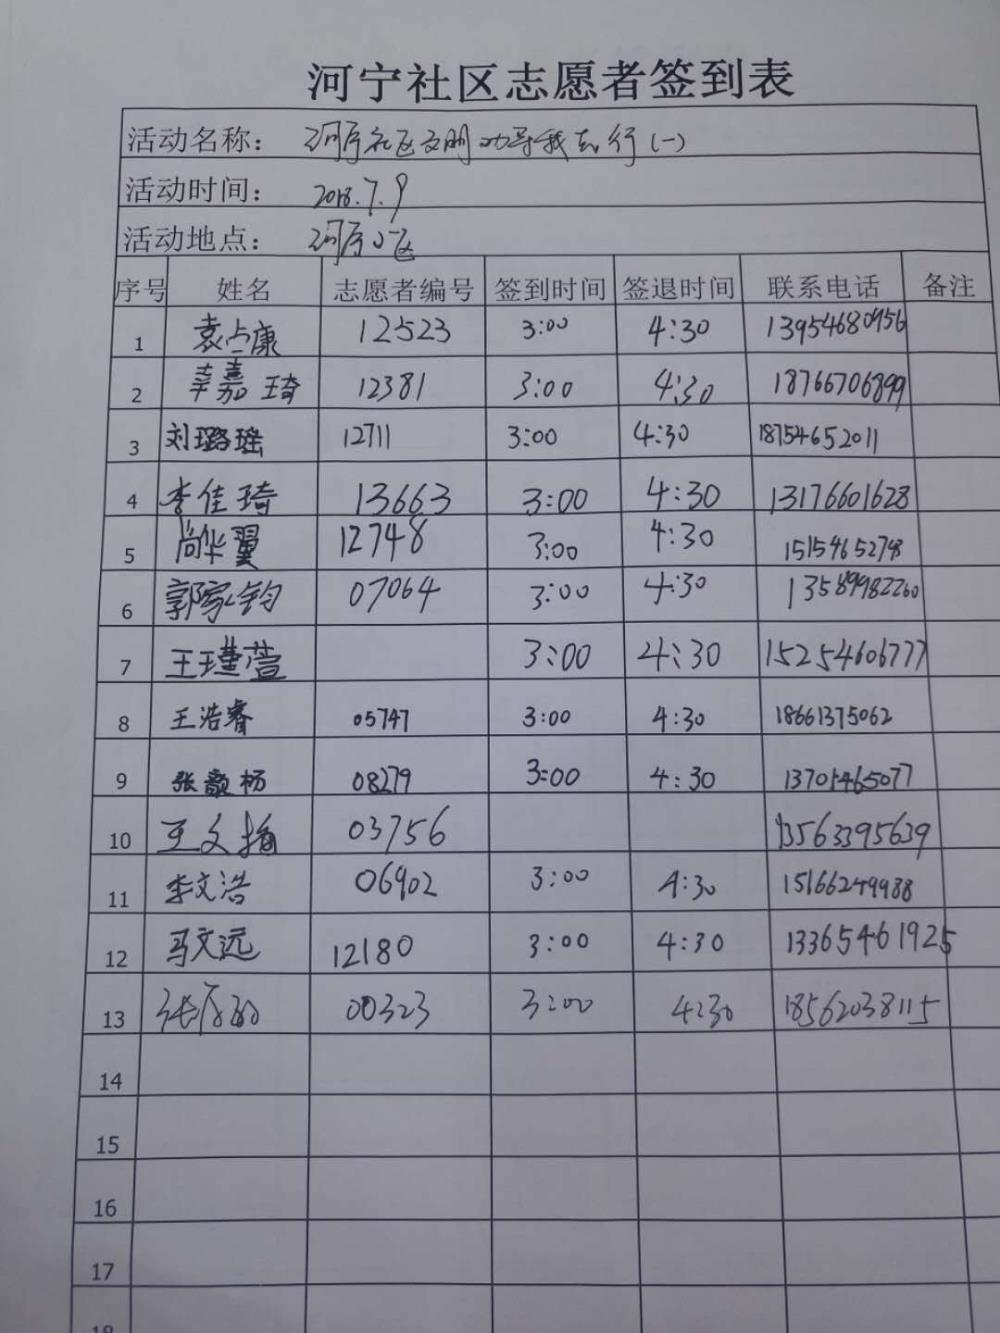 河宁社区志愿者签到表
活动名称： 河宁社区文明劝导我先行(一)
活动时间： 2018.7.9
活动地点： 河宁小区
序号 姓名 志愿者编号 签到时间 签退时间 联系电话 备注
1 袁上康 12523 3:00 4:30 13954680956
2 辛嘉琦 12381 3:00 4:30 18766706899
3 刘璐瑶 12711 3:00 4:30 18754652011
4 李佳琦 13663 3:00 4:30 13176601628
5 尚华翼 12748 3:00 4:30 15154652748
6 郭家钧 07064 3:00 4:30 13589982260
7 王瑾萱 3:00 4:30 15254606777
8 王浩睿 05747 3:00 4:30 18661375062
9 张馨杨 08279 3:00 4:30 13701465077
10 王文 03756 13563395639
11 李文浩 06902 3:00 4:30 15166249988
12 马文远 12180 3:00 4:30 13365461925
13 张 00323 3:00 4:30 18562038115
14
15
16
17
18